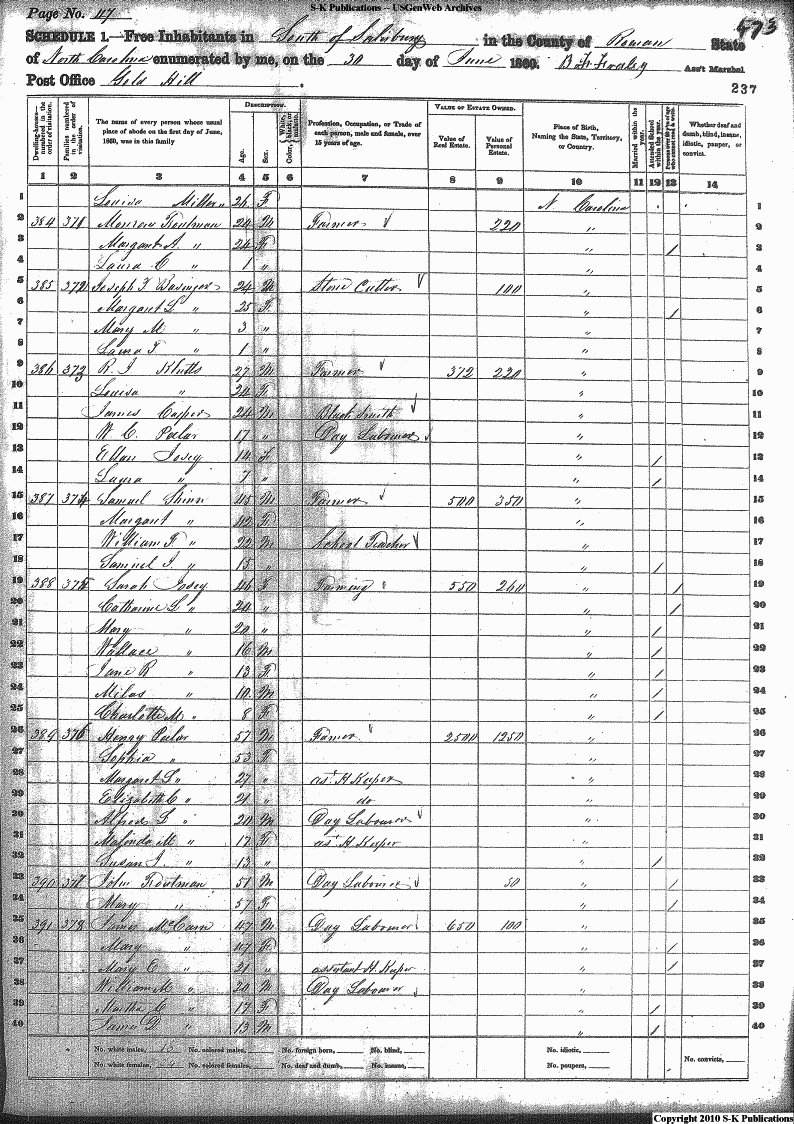 S-K Publications – USGenWeb Archives
Page No. 47
573
SCHEDULE 1.—Free Inhabitants in South of Salisbury in the County of Rowan State
of North Carolina enumerated by me, on the 30 day of June 1860. Ass't Marshal
Post Office Gold Hill
237
Dwelling-houses—numbered in the order of visitation.
Families numbered in the order of visitation.
The name of every person whose usual place of abode on the first day of June, 1860, was in this family
DESCRIPTION.
Age.
Sex.
Color, White, black, or mulatto.
Profession, Occupation, or Trade of each person, male and female, over 15 years of age.
VALUE OF ESTATE OWNED.
Value of Real Estate.
Value of Personal Estate.
Place of Birth, Naming the State, Territory, or Country.
Married within the year.
Attended School within the year.
Persons over 20 y'rs of age who cannot read & write.
Whether deaf and dumb, blind, insane, idiotic, pauper, or convict.
1 2 3 4 5 6 7 8 9 10 11 12 13 14
1 Louisa Miller 26 F N. Carolina 1
2 384 371 Troutman 24 M Farmer 220 " 2
3 Margaret A. " 24 F " / 3
4 Laura C " 1 " " 4
5 385 372 Joseph F Basinger 24 M Stone Cutter 100 " 5
6 Margaret L " 25 F " / 6
7 Mary M " 3 " " 7
8 Laura F. " 1 " " 8
9 386 373 R. J Klutts 27 M Farmer 372 220 " 9
10 Louisa " 24 F " 10
11 James Casper 24 M Black Smith " 11
12 W. C. Peeler 17 " Day Labourer " 12
13 Ellen Josey 14 F " / 13
14 Laura " 7 " " / 14
15 387 374 Samuel Shinn 45 M Farmer 500 350 " 15
16 Margaret " 42 F " 16
17 William F " 22 M School Teacher " 17
18 Samuel J. " 15 " " / 18
19 388 375 Sarah Josey 46 F Farming 550 260 " / 19
20 Catharine L " 24 " " / 20
21 Mary " 20 " " / 21
22 Wallace " 16 M " / 22
23 Jane R " 13 F " / 23
24 Milas " 10 M " / 24
25 Charlotte M. " 8 F " / 25
26 389 376 Henry Peeler 57 M Farmer 2500 1250 " 26
27 Sophia " 53 F " 27
28 Margaret L " 27 " ast H Keeper " 28
29 Elizabeth C " 21 " do " 29
30 Alfred L " 20 M Day Labourer " 30
31 Malinda M " 17 F ast H Keeper " 31
32 Susan J. " 13 " " / 32
33 390 377 John Troutman 51 M Day Labourer 50 " / 33
34 Mary " 57 F " / 34
35 391 378 James McCarn 47 M Day Labourer 650 100 " 35
36 Mary " 47 F " / 36
37 Mary C " 21 " assistant H. Keeper " / 37
38 William M " 20 M Day Labourer " 38
39 Martha C " 17 F " / 39
40 James D. " 13 M " / 40
No. white males, No. colored males, No. foreign born, No. blind, No. idiotic, No. convicts,
No. white females, No. colored females, No. deaf and dumb, No. insane, No. paupers,
Copyright 2010 S-K Publications